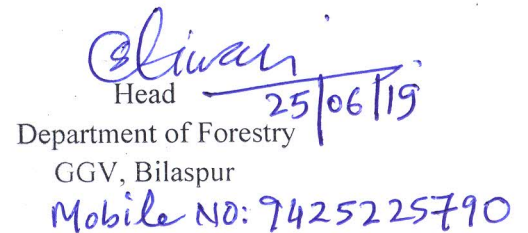 Head
25/06/19
Department of Forestry
GGV, Bilaspur
Mobile NO: 9425225790